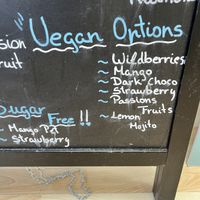 Vegan Options
ssion
ruit
~ Wildberries
~ Mango
~ Dark Choco
~ Strawberry
~ Passions
Fruits
~ Lemon
Mojito
Sugar
Free !!
~ Mango P21
~ Strawberry